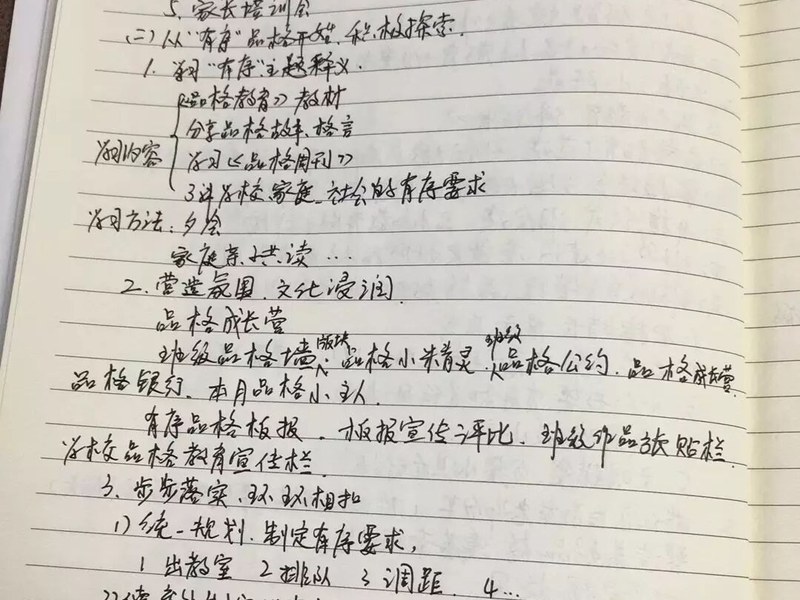 5、家长培训会
(二)从"有序"品格开始,积极探索.
1、学习"有序"主题释义.
《品格教育》教材
分享品格故事、格言
学习内容
学习《品格周刊》
了解学校、家庭、社会的有序要求
学习方法:夕会
家庭亲子共读...
2、营造氛围、文化浸润.
品格成长营
班级品格墙版块:品格小精灵、班级品格公约、品格成长营、
品格银行、本月品格小主人.
有序品格板报、板报宣传评比、班级作品张贴栏、
学校品格教育宣传栏
3、步步落实、环环相扣
1)统一规划、制定有序要求,
1出教室 2排队 3调距、4...